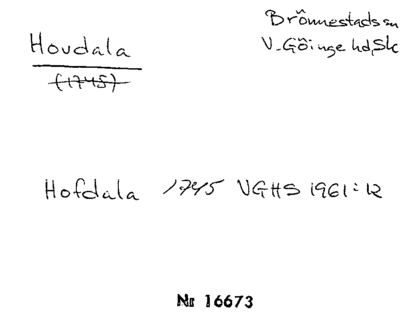 Hovdala
(1745)
Brönnestads sn
V. Göinge hd, Sk
Hofdala 1745 VGHS 1961:12
Nr 16673